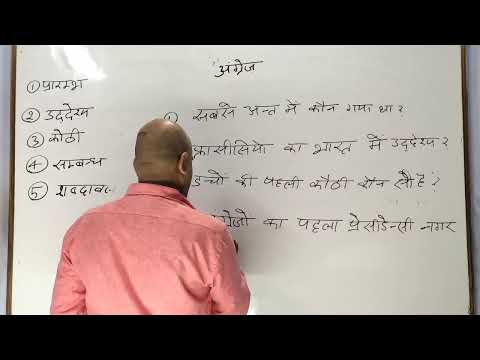 अंग्रेज
① प्रारम्भ
② उददेश्य
③ कोठी
④ सम्बन्ध
⑤ शब्दाव
सबसे अन्त में कौन गया था ?
का भारत में उददेश्य ?
की पहली कौठी कौन सी है ?
का पहला प्रेसीडेन्सी नगर